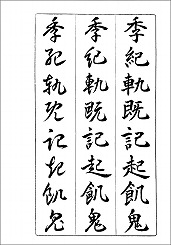 季紀軌既記起飢鬼
季紀軌既記起飢鬼
季紀軌既記起飢鬼